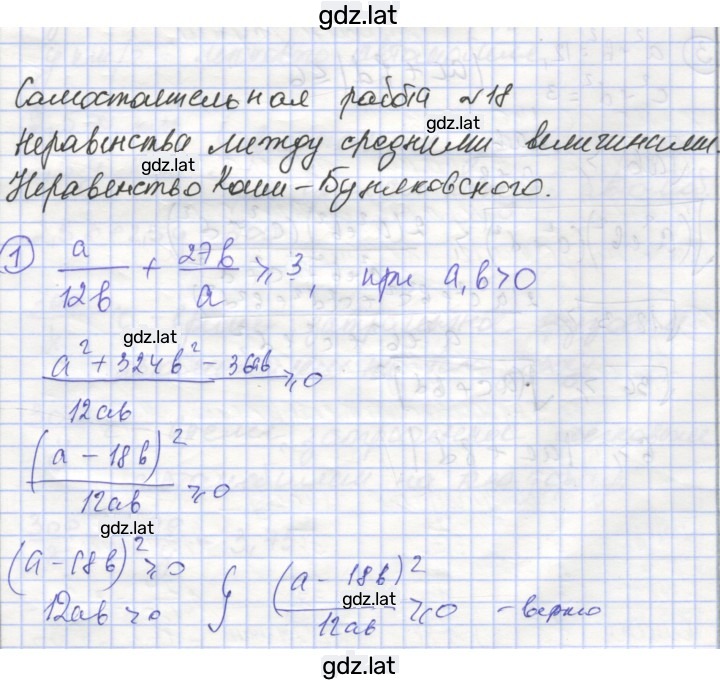 gdz.lat
Самостоятельная работа №18
gdz.lat
Неравенства между средними величинами.
gdz.lat
Неравенство Коши-Буняковского.
① a/12b + 27b/a ≥ 3, при a, b > 0
gdz.lat
(a² + 324b² - 36ab)/12ab ≥ 0
gdz.lat
(a - 18b)²/12ab ≥ 0
gdz.lat
(a - 18b)² ≥ 0
12ab > 0 } (a - 18b)²/12ab ≥ 0 - верно
gdz.lat
gdz.lat